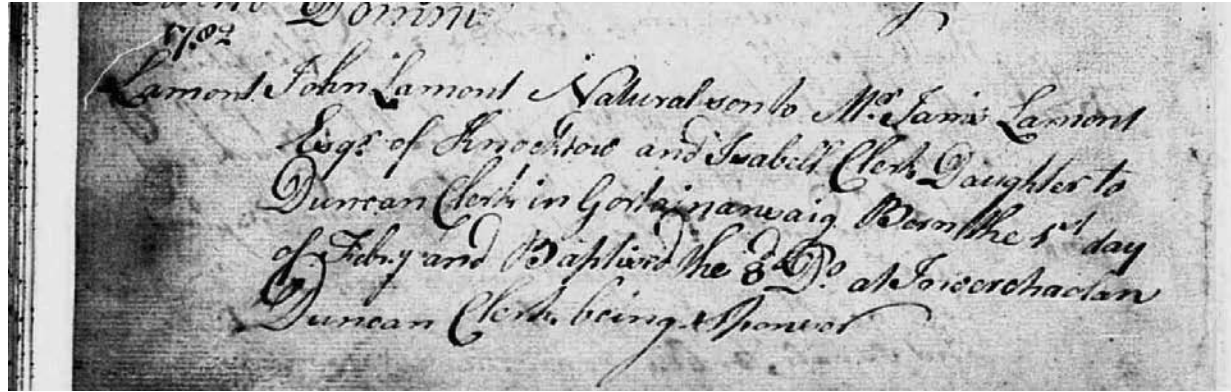 Domini
1782
Lamont John Lamont Natural son to Mr. James Lamont
Esqr. of Knockdow and Isabell Clerk Daughter to
Duncan Clerk in Gortainanvaig Born the 1st day
of Febry and Baptized the 8th Do. at Inverchaolan
Duncan Clerk being Sponsor